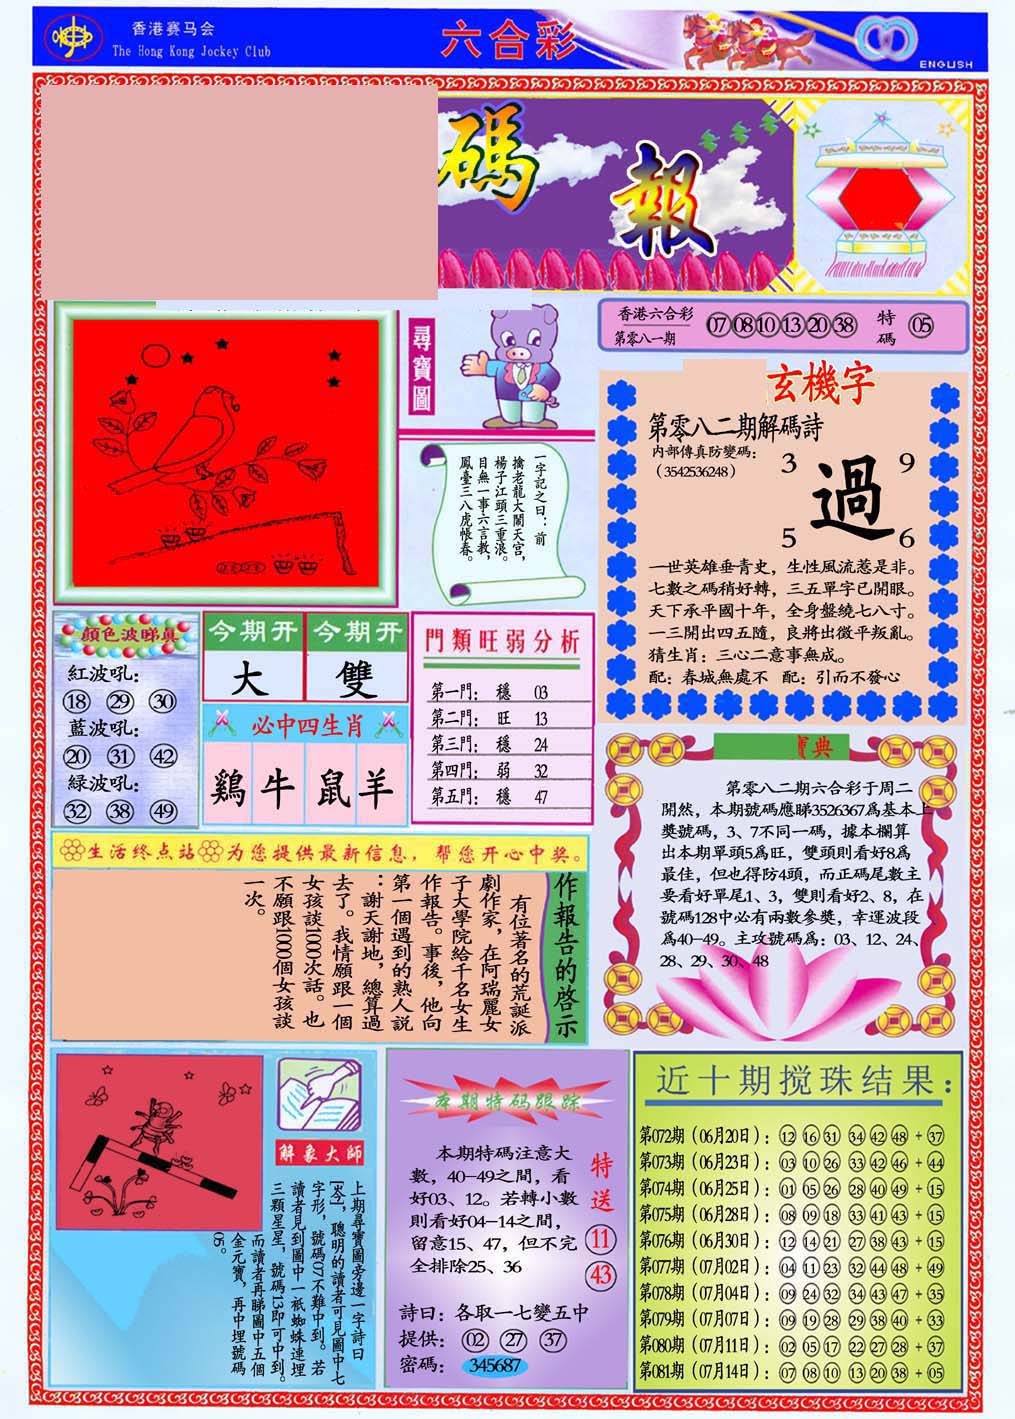 香港赛马会
The Hong Kong Jockey Club
六合彩
ENGLISH
碼報
尋寶圖
香港六合彩
第零八一期
07 08 10 13 20 38
特碼
05
一字記之曰：前
擒老龍大鬧天宫，
楊子江頭三重浪。
目無一事六言教，
鳳臺三八虎帳春。
玄機字
第零八二期解碼詩
内部傳真防變碼：
（3542536248）
3
9
過
5
6
一世英雄垂青史，生性風流惹是非。
七數之碼稍好轉，三五單字已開眼。
天下承平國十年，全身盤繞七八寸。
一三開出四五隨，良將出微平叛亂。
猜生肖：三心二意事無成。
配：春城無處不 配：引而不發心
顔色波睇真
紅波吼：
18 29 30
藍波吼：
20 31 42
緑波吼：
32 38 49
今期开
今期开
大
雙
必中四生肖
鷄 牛 鼠 羊
門類旺弱分析
第一門： 穩 03
第二門： 旺 13
第三門： 穩 24
第四門： 弱 32
第五門： 穩 47
寶典
第零八二期六合彩于周二
開然，本期號碼應睇3526367爲基本上
獎號碼，3、7不同一碼，據本欄算
出本期單頭5爲旺，雙頭則看好8爲
最佳，但也得防4頭，而正碼尾數主
要看好單尾1、3，雙則看好2、8，在
號碼128中必有兩數參獎，幸運波段
爲40-49。主攻號碼爲：03、12、24、
28、29、30、48
生活终点站
为您提供最新信息，帮您开心中奖。
作報告的啓示
有位著名的荒誕派
劇作家，在阿瑞麗女
子大學院給千名女生
作報告。事後，他向
第一個遇到的熟人説
：謝天謝地，總算過
去了。我情願跟一個
女孩談1000次話。也
不願跟1000個女孩談
一次。
解象大師
上期尋寶圖旁邊一字詩曰
[岑]，聰明的讀者可見圖中七
字形，號碼07不難中到。若
讀者見到圖中一衹蜘蛛連埋
三顆星星，號碼13即可中到。
而讀者再睇圖中五個
金元寶，再中埋號碼
05。
本期特码跟踪
本期特碼注意大
數，40-49之間，看
好03、12。若轉小數
則看好04-14之間，
留意15、47，但不完
全排除25、36
特送
11
43
詩曰：各取一七變五中
提供： 02 27 37
密碼： 345687
近十期搅珠结果：
第072期（06月20日）：12 16 31 34 42 48 + 37
第073期（06月23日）：03 10 26 33 42 46 + 44
第074期（06月25日）：01 05 26 28 40 49 + 15
第075期（06月28日）：08 09 18 33 41 43 + 15
第076期（06月30日）：12 14 21 27 38 43 + 15
第077期（07月02日）：04 11 23 32 44 48 + 49
第078期（07月04日）：09 24 32 34 43 47 + 35
第079期（07月07日）：09 19 28 29 38 40 + 33
第080期（07月11日）：02 05 17 22 27 28 + 37
第081期（07月14日）：07 08 10 13 20 38 + 05